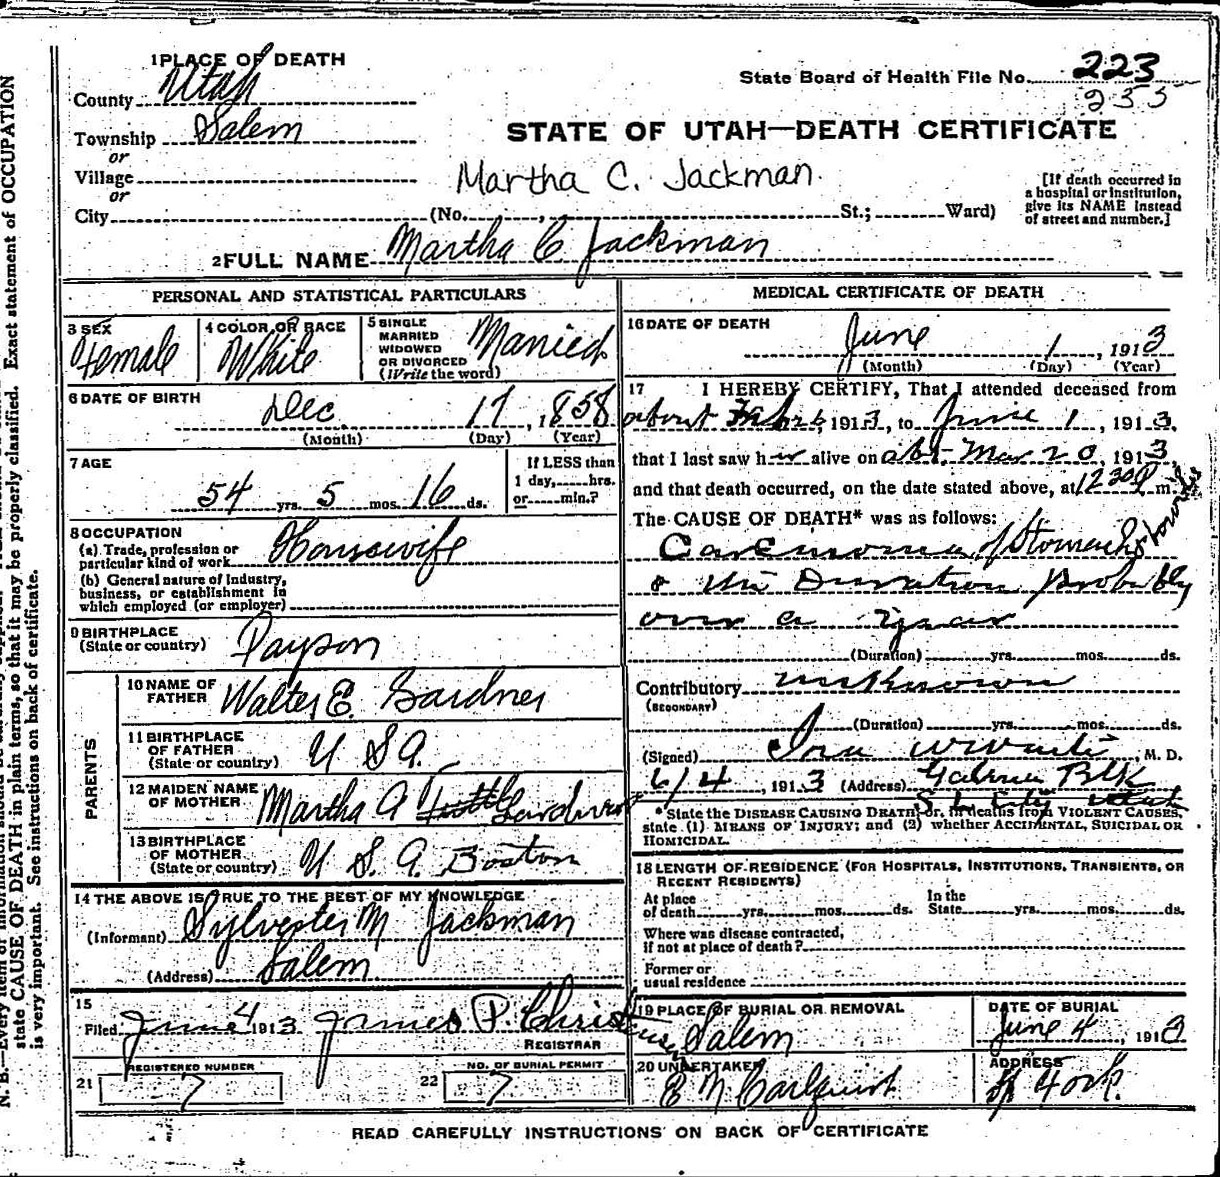 1 PLACE OF DEATH
County Utah
State Board of Health File No. 223
233
Township Salem
STATE OF UTAH—DEATH CERTIFICATE
or
Village
Martha C. Jackman
or
City (No. , St.; Ward)
[If death occurred in a hospital or institution, give its NAME instead of street and number.]
2 FULL NAME Martha C Jackman
PERSONAL AND STATISTICAL PARTICULARS
3 SEX
Female
4 COLOR OR RACE
White
5 SINGLE
MARRIED
WIDOWED
OR DIVORCED
(Write the word)
Married
6 DATE OF BIRTH
Dec. 17, 1858
(Month) (Day) (Year)
7 AGE
54 yrs. 5 mos. 16 ds.
If LESS than
1 day, hrs.
or min.?
8 OCCUPATION
(a) Trade, profession or
particular kind of work Housewife
(b) General nature of industry,
business, or establishment in
which employed (or employer)
9 BIRTHPLACE
(State or country) Payson
PARENTS
10 NAME OF
FATHER Walter E. Gardner
11 BIRTHPLACE
OF FATHER
(State or country) U S A.
12 MAIDEN NAME
OF MOTHER Martha A Tuttle Gardner
13 BIRTHPLACE
OF MOTHER
(State or country) U. S. A. Boston
14 THE ABOVE IS TRUE TO THE BEST OF MY KNOWLEDGE
(Informant) Sylvester M Jackman
(Address) Salem
15
Filed June 4 1913 James P. Christensen
REGISTRAR
21 REGISTERED NUMBER
7
22 NO. OF BURIAL PERMIT
7
MEDICAL CERTIFICATE OF DEATH
16 DATE OF DEATH
June 1, 1913
(Month) (Day) (Year)
17 I HEREBY CERTIFY, That I attended deceased from
about , 1913, to June 1, 1913,
that I last saw her alive on abt. Mar 20, 1913,
and that death occurred, on the date stated above, at 12 30 P m.
The CAUSE OF DEATH* was as follows:
Carcinoma of Stomach & bowels
Duration Probably
over a year
(Duration) yrs. mos. ds.
Contributory unknown
(SECONDARY)
(Duration) yrs. mos. ds.
(Signed) Ira , M. D.
6/4, 1913 (Address) Blk
S. L. City Utah
* State the DISEASE CAUSING DEATH; or, in deaths from VIOLENT CAUSES,
state (1) MEANS OF INJURY; and (2) whether ACCIDENTAL, SUICIDAL OR
HOMICIDAL.
18 LENGTH OF RESIDENCE (FOR HOSPITALS, INSTITUTIONS, TRANSIENTS, OR
RECENT RESIDENTS)
At place
of death yrs. mos. ds.
In the
State yrs. mos. ds.
Where was disease contracted,
if not at place of death?
Former or
usual residence
19 PLACE OF BURIAL OR REMOVAL
Salem
DATE OF BURIAL
June 4, 1913
20 UNDERTAKER
ADDRESS
Sp Fork.
READ CAREFULLY INSTRUCTIONS ON BACK OF CERTIFICATE
state CAUSE OF DEATH in plain terms, so that it may be properly classified. Exact statement of OCCUPATION
is very important. See instructions on back of certificate.